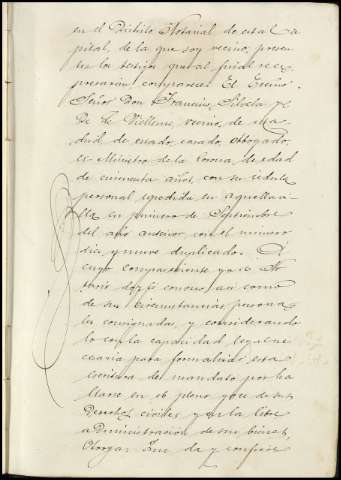 en el Distrito Notarial de esta Ca
pital, de la que soy vecino, presen
tes los testigos que al final se ex
presarán, comparece: El Excmo
Señor Don Francisco Silvela y
De Le Vielleuze, vecino de Ma
drid, de estado casado, Abogado,
ex-Ministro de la Corona, de edad
de cincuenta años, con su cédula
personal expedida en aquella vi
lla en primero de Septiembre
del año anterior, con el número
diez y nueve duplicado. Á
cuyo compareciente yo el No
tario doy fé conozco, así como
de sus circunstancias persona
les consignadas, y considerando
lo con la capacidad legal nece
saria para formalizar esta
escritura de mandato por ha
llarse en el pleno goce de sus
Derechos civiles y en la libre
administracion de sus bienes,
Otorga: Que da y confiere